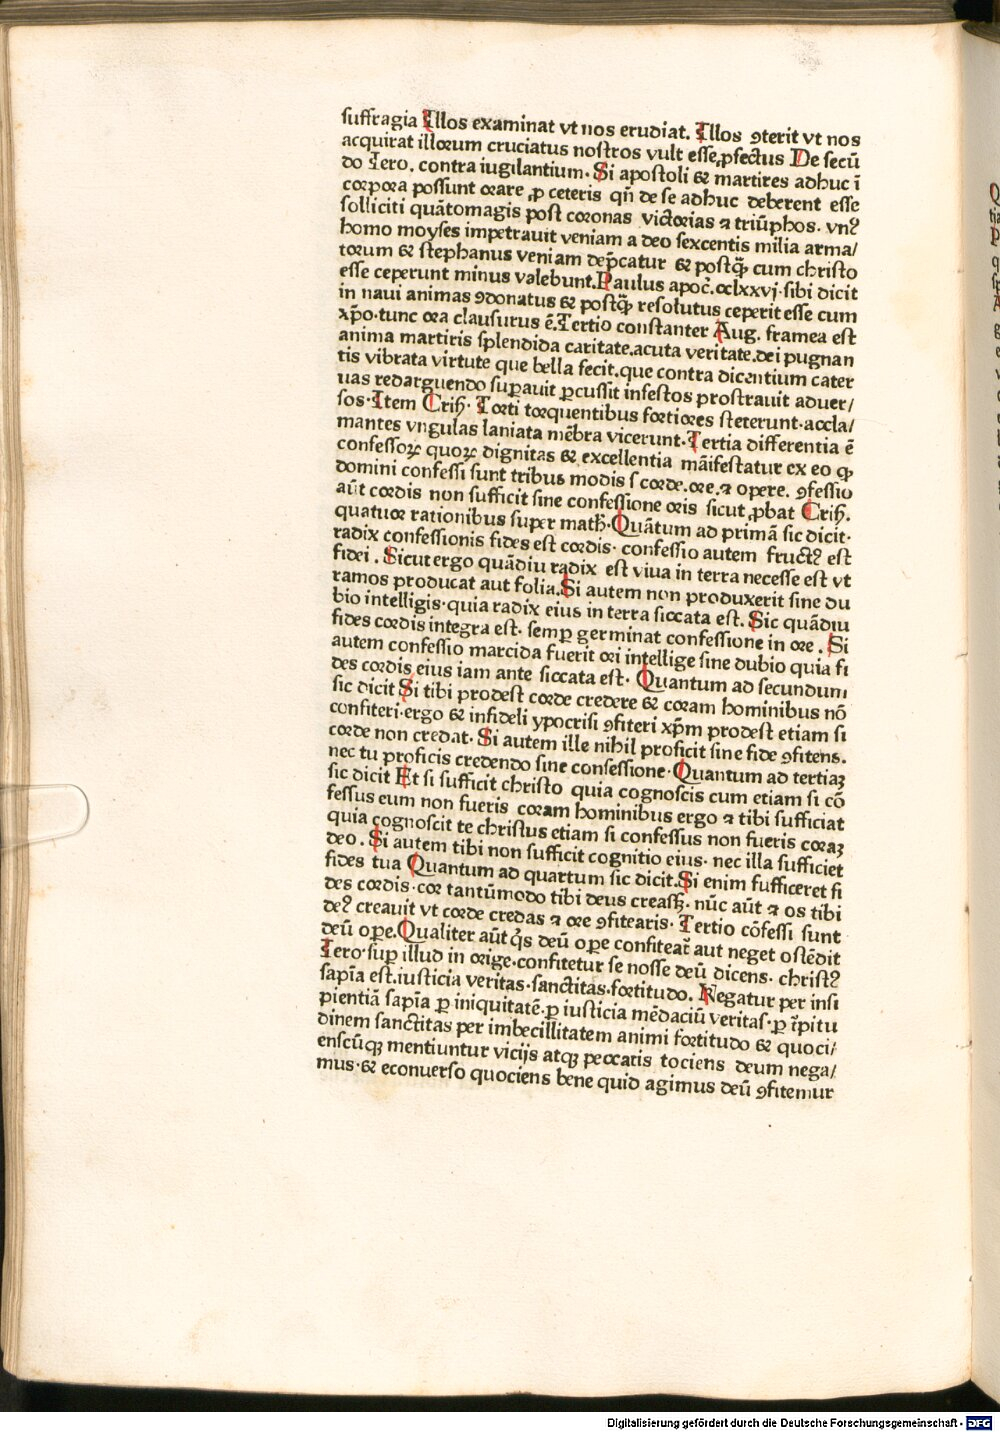 suffragia Illos examinat vt nos erudiat. Illos ꝯterit vt nos
acquirat illorum cruciatus nostros vult esse ꝓfectus De secū
do Iero. contra iugilantium. Si apostoli & martires adhuc ī
corpora possunt orare ꝓ ceteris qn̄ de se adhuc deberent esse
solliciti quātomagis post coronas victorias ⁊ triūphos. vnꝰ
homo moyses impetrauit veniam a deo sexcentis milia arma/
torum & stephanus veniam dep̄catur & postꝙ̄ cum christo
esse ceperunt minus valebunt. Paulus apoc̄. cclxxvj. sibi dicit
in naui animas ꝯdonatus & postꝙ̄ resolutus ceperit esse cum
xp̄o. tunc ora clausurus ē. Tertio constanter Aug. framea est
anima martiris splendida caritate. acuta veritate. dei pugnan
tis vibrata virtute que bella fecit. que contra dicentium cater
uas redarguendo suꝑauit ꝑcussit infestos prostrauit aduer/
sos. Item Criẜ. Torti torquentibus fortiores steterunt. accla/
mantes vngulas laniata mēbra vicerunt. Tertia differentia ē
confessoꝝ quoꝝ dignitas & excellentia māifestatur ex eo ꝙ
domini confessi sunt tribus modis s corde. ore. ⁊ opere. ꝯfessio
aūt cordis non sufficit sine confessione oris sicut ꝓbat Criẜ.
quatuor rationibus super math̄. Quātum ad primā sic dicit.
radix confessionis fides est cordis. confessio autem fructꝰ est
fidei. Sicut ergo quādiu radix est viua in terra necesse est vt
ramos producat aut folia. Si autem non produxerit sine du
bio intelligis. quia radix eius in terra siccata est. Sic quādiu
fides cordis integra est. semꝑ germinat confessione in ore. Si
autem confessio marcida fuerit ori intellige sine dubio quia fi
des cordis eius iam ante siccata est. Quantum ad secundum
sic dicit Si tibi prodest corde credere & coram hominibus nō
confiteri. ergo & infideli ypocrisi ꝯfiteri xp̄m prodest etiam si
corde non credat. Si autem ille nihil proficit sine fide ꝯfitens.
nec tu proficis credendo sine confessione. Quantum ad tertiaꝫ
sic dicit Et si sufficit christo quia cognoscis cum etiam si cō
fessus eum non fueris coram hominibus ergo ⁊ tibi sufficiat
quia cognoscit te christus etiam si confessus non fueris coraꝫ
deo. Si autem tibi non sufficit cognitio eius. nec illa sufficiet
fides tua Quantum ad quartum sic dicit. Si enim fufficeret fi
des cordis. cor tantūmodo tibi deus creasꝫ. nūc aūt ⁊ os tibi
deꝰ creauit vt corde credas ⁊ ore ꝯfitearis. Tertio cōfessi sunt
deū oꝑe. Qualiter aūt q̄s deū oꝑe confiteat̄ aut neget ostēdit
Iero. suꝑ illud in orige. confitetur se nosse deū dicens. christꝰ
sapīa est. iusticia veritas. sanctitas. fortitudo. Negatur per insi
pientiā sapīa ꝑ iniquitatē. ꝑ iusticia mēdaciū veritas. ꝑ t̄pitu
dinem sanctitas per imbecillitatem animi fortitudo & quoci/
enscūqꝫ mentiuntur vicijs atqꝫ peccatis tociens deum nega/
mus. & econuerso quociens bene quid agimus deū ꝯfitemur
Digitalisierung gefördert durch die Deutsche Forschungsgemeinschaft - DFG